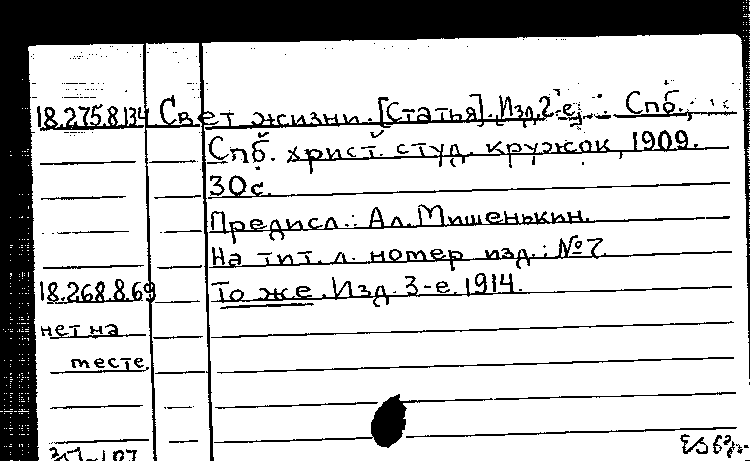 18.275.8.134 Свет жизни. [Статья]. Изд. 2-е. Спб.,
Спб. христ. студ. кружок, 1909.
30с.
Предисл.: Ал. Мишенькин.
На тит. л. номер изд.: №7.
18.268.8.69 То же. Изд. 3-е. 1914.
нет на
месте.